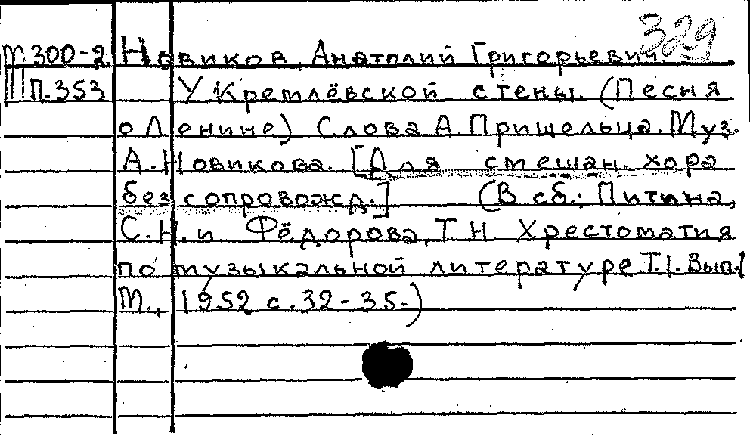 329
М.300-2 Новиков, Анатолий Григорьевич.
III П.353 У Кремлёвской стены. (Песня
о Ленине) Слова А. Пришельца. Муз.
А. Новикова. [Для смешан. хора
без сопровожд.] (В сб.: Питина,
С.Н. и Фёдорова, Т.Н Хрестоматия
по музыкальной литературе Т.I. Вып.I
М., 1952 с. 32-35.)